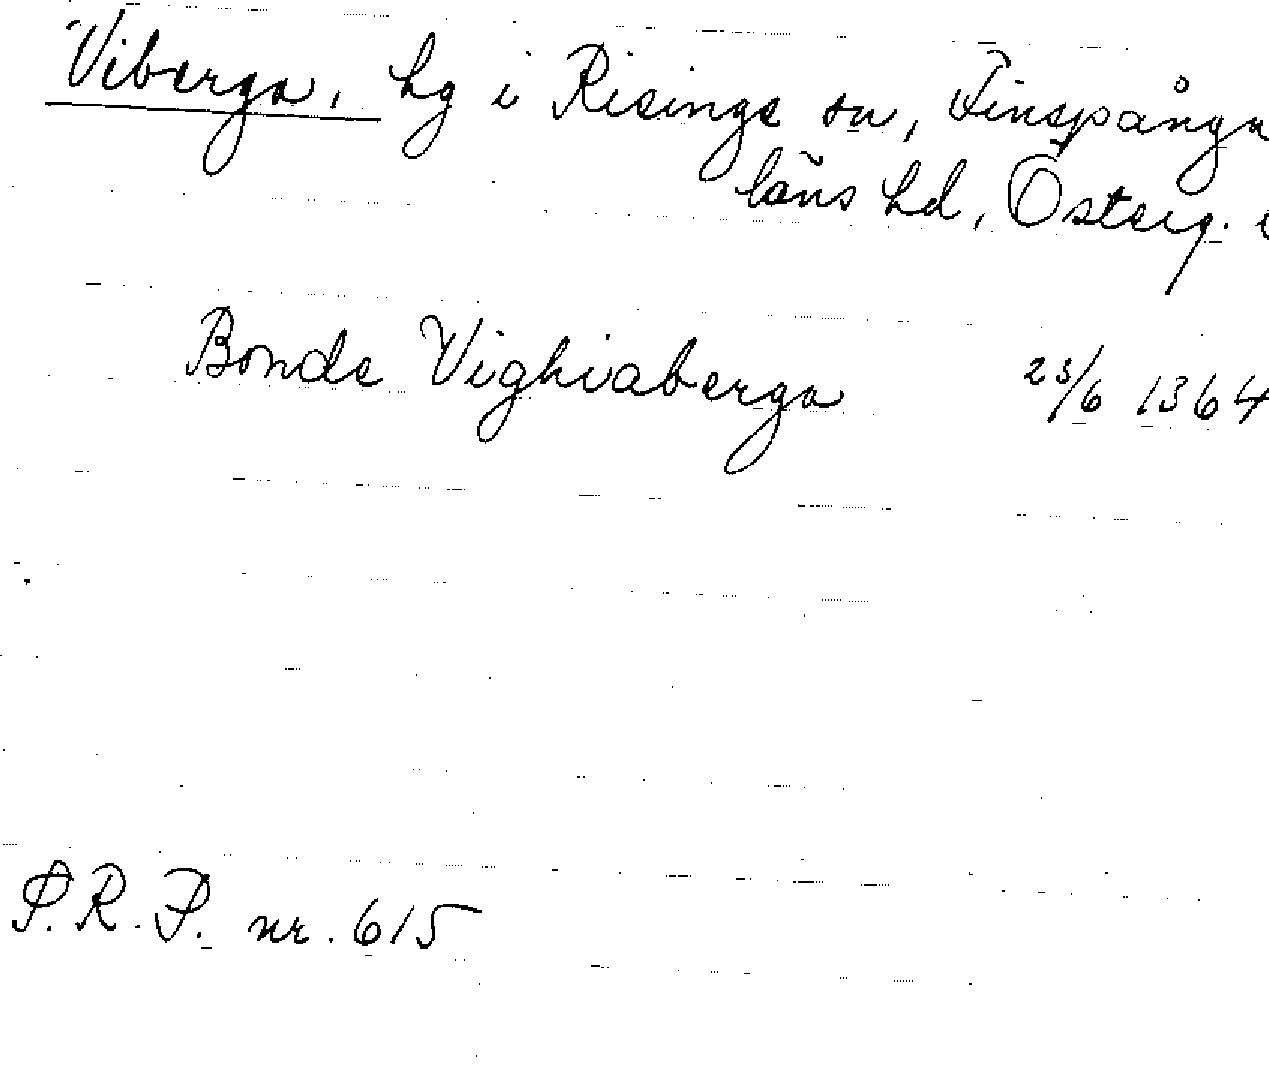 Viberga, hg i Risinge sn, Finspånga
läns hd, Österg. 
Bonde Vighiaberga 23/6 1364
S.R.P. nr. 615